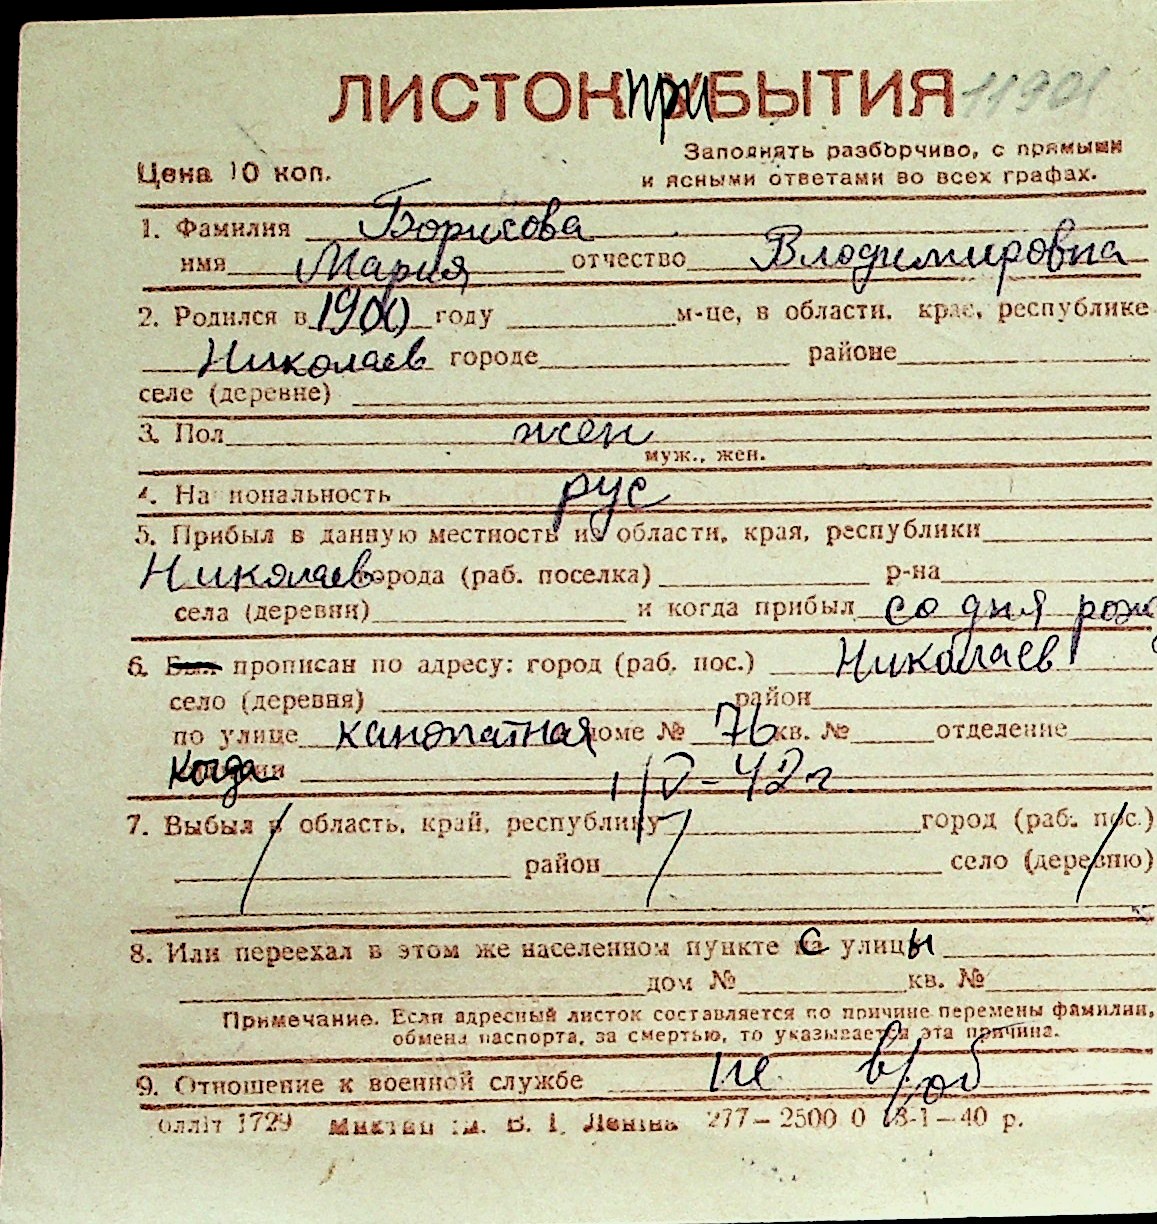 ЛИСТОК прИБЫТИЯ 11901
Заполнять разборчиво, с прямыми
Цена 10 коп.
и ясными ответами во всех графах.
1. Фамилия Борисова
имя Мария отчество Владимировна
2. Родился в 1900 году м-це, в области, крае, республике
Николаев городе районе
селе (деревне)
3. Пол жен
муж., жен.
4. На иональность рус
5. Прибыл в данную местность из области, края, республики
Николаев города (раб. поселка) р-на
села (деревни) и когда прибыл со дня рожд
6. Был прописан по адресу: город (раб. пос.) Николаев
село (деревня) район
по улице канопатная доме № 76 кв. № отделение
когда 1/V-42 г.
7. Выбыл в область, край, республику город (раб. пос.)
район село (деревню)
8. Или переехал в этом же населенном пункте с улицы
дом № кв. №
Примечание. Если адресный листок составляется по причине перемены фамилии,
обмена паспорта, за смертью, то указывается эта причина.
9. Отношение к военной службе не в/об
блліт 1729 їм. В. І. Леніна 277—2500 0 3-1—40 р.